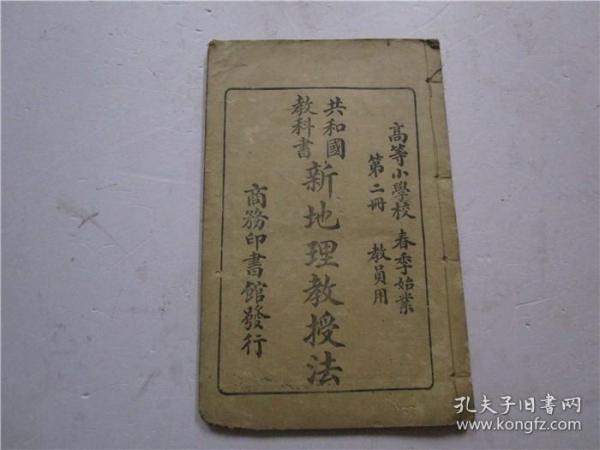 高等小學校 春季始業
第二冊 教員用
共和國
教科書
新地理教授法
商務印書館發行
孔夫子旧书网
www.kongfz.com